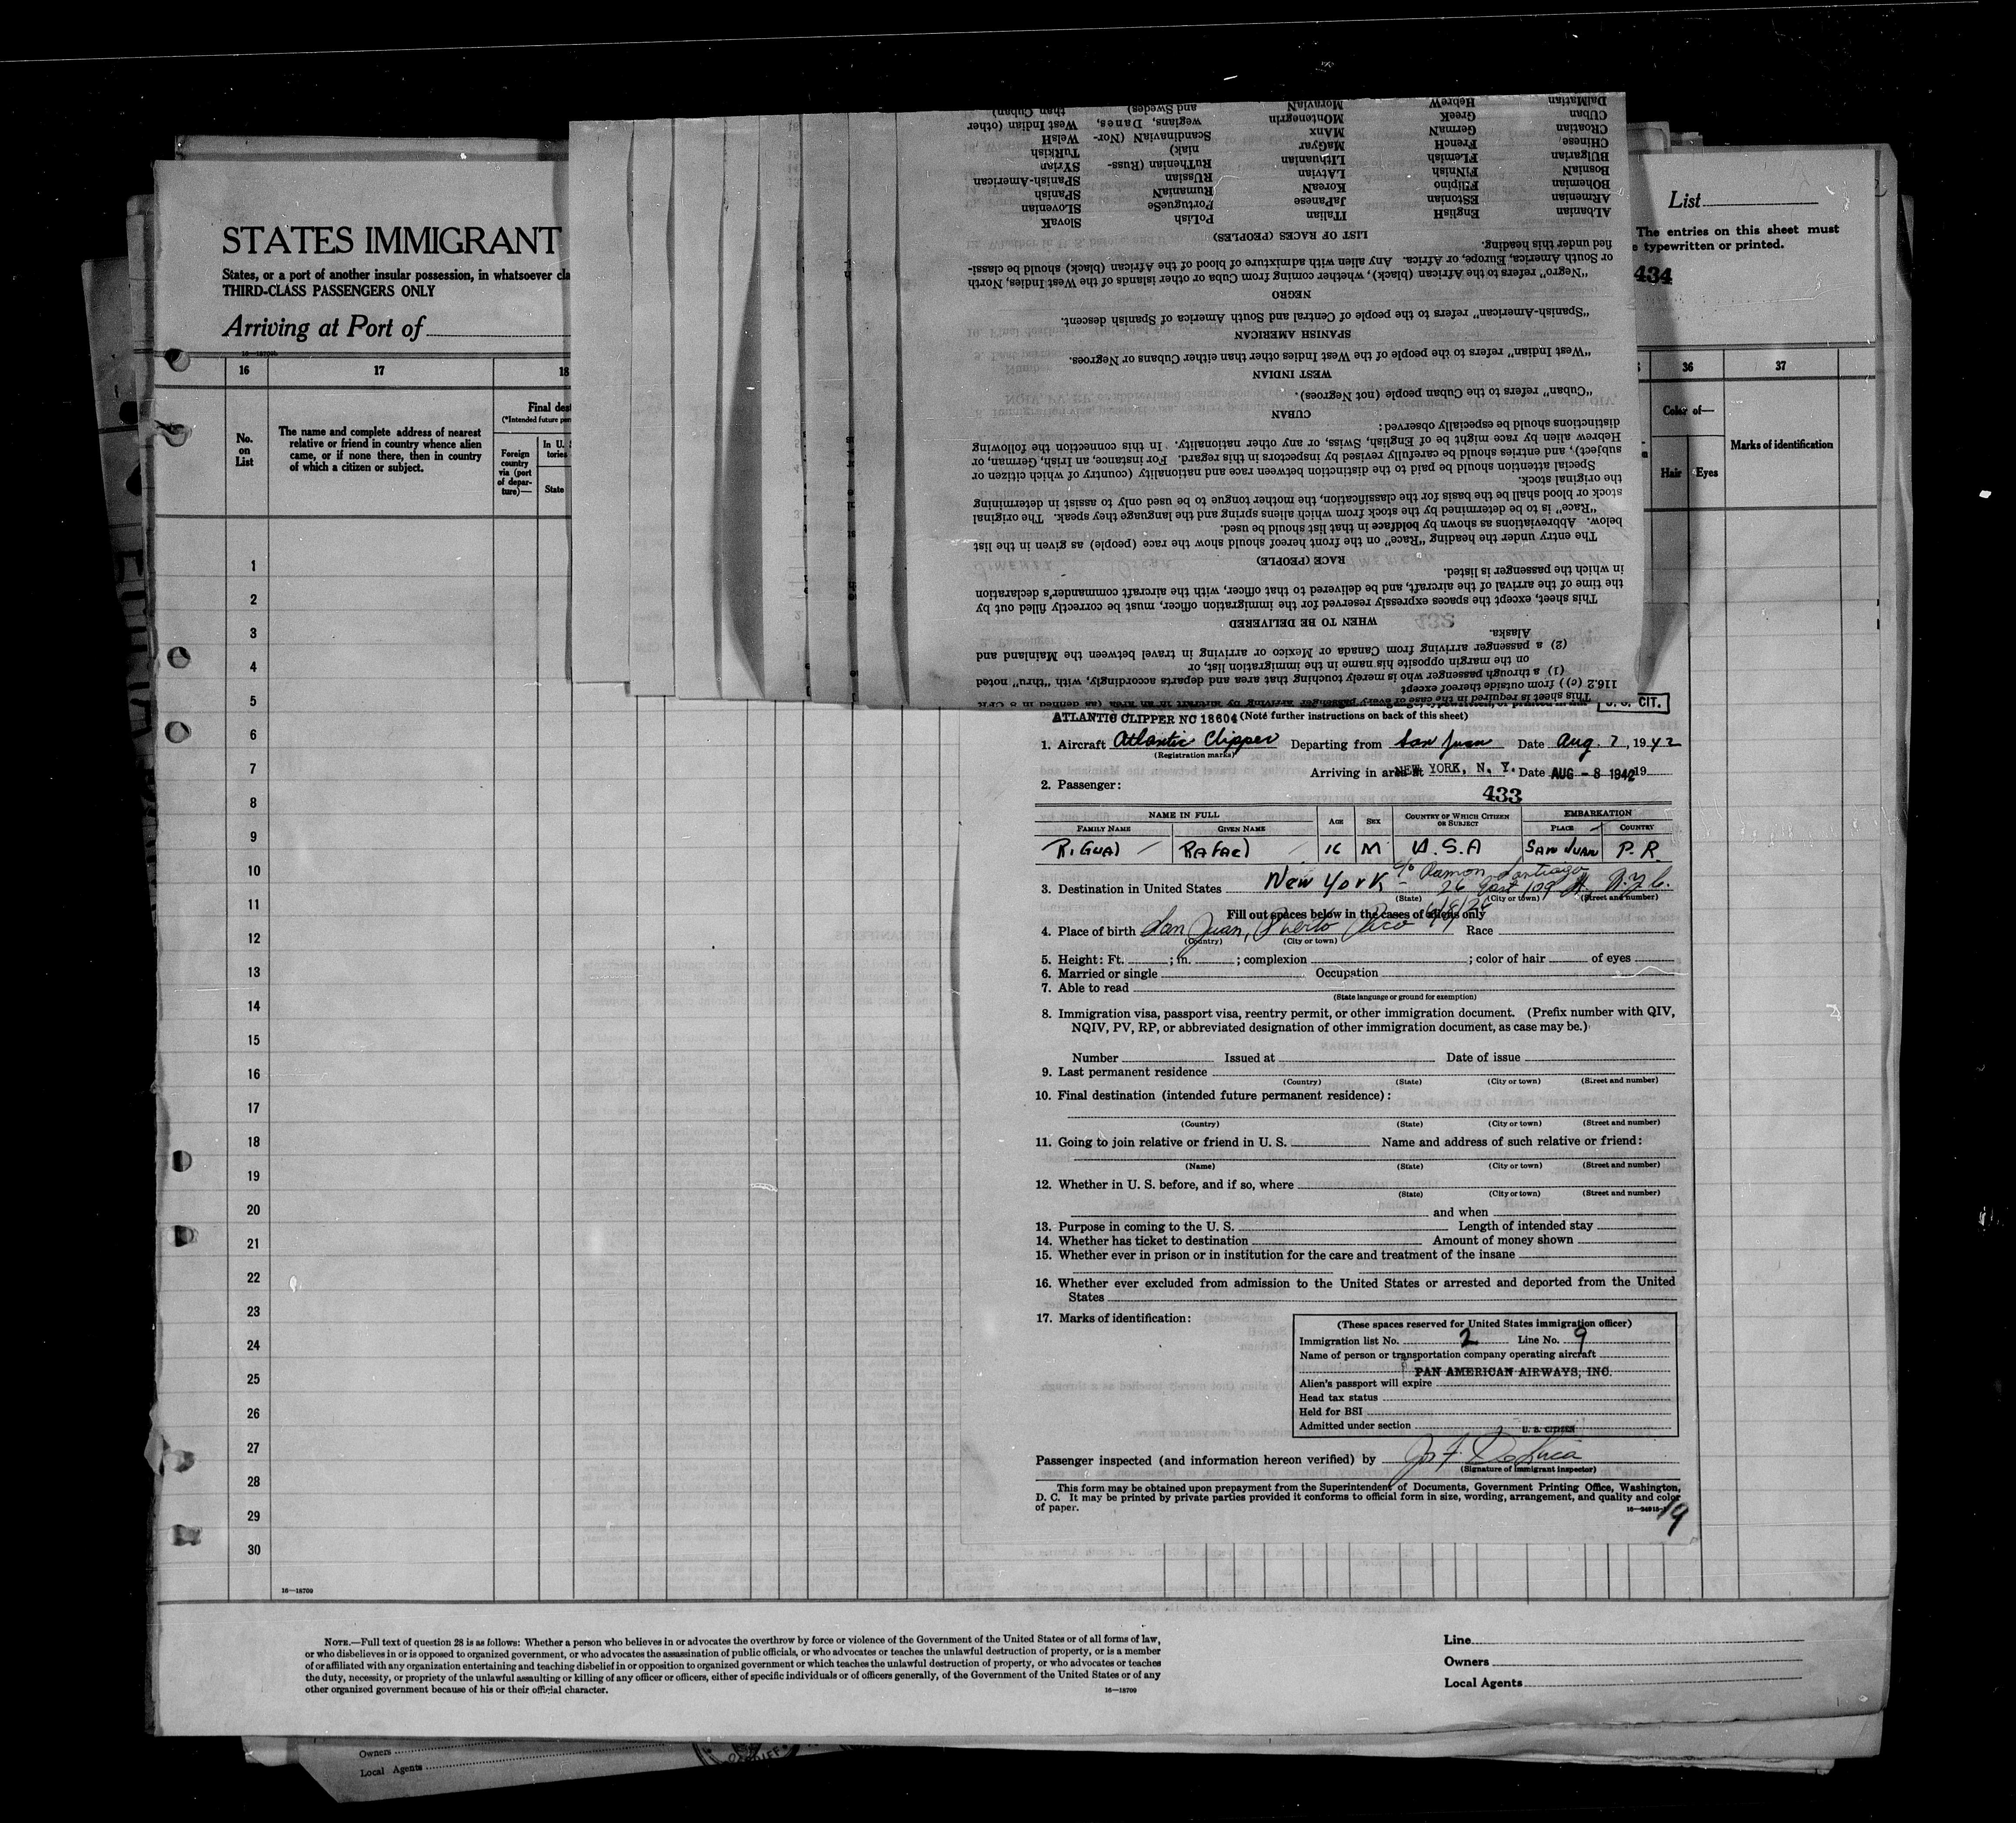 STATES IMMIGRANT
States, or a port of another insular possession, in whatsoever cla
THIRD-CLASS PASSENGERS ONLY
Arriving at Port of
16—18709b
16 17 18
No. on List
The name and complete address of nearest
relative or friend in country whence alien
came, or if none there, then in country
of which a citizen or subject.
Final dest
(*Intended future per
Foreign country via (port of depar-ture)—
In U. S
tories
State
1
2
3
4
5
6
7
8
9
10
11
12
13
14
15
16
17
18
19
20
21
22
23
24
25
26
27
28
29
30
16—18709
List
The entries on this sheet must
e typewritten or printed.
434
36 37
Color of—
Hair Eyes
Marks of identification
This sheet is required in the case of every passenger arriving by aircraft in an area (as defined in 8 CFR
116.2 (c)) from outside thereof except
(1) a through passenger who is merely touching that area and departs accordingly, with "thru" noted
on the margin opposite his name in the immigration list, or
(2) a passenger arriving from Canada or Mexico or arriving in travel between the Mainland and
Alaska.
WHEN TO BE DELIVERED
This sheet, except the spaces expressly reserved for the immigration officer, must be correctly filled out by
the time of the arrival of the aircraft, and be delivered to that officer, with the aircraft commander's declaration
in which the passenger is listed.
RACE (PEOPLE)
The entry under the heading "Race" on the front hereof should show the race (people) as given in the list
below. Abbreviations as shown by boldface in that list should be used.
"Race" is to be determined by the stock from which aliens spring and the language they speak. The original
stock or blood shall be the basis for the classification, the mother tongue to be used only to assist in determining
the original stock.
Special attention should be paid to the distinction between race and nationality (country of which citizen or
subject), and entries should be carefully revised by inspectors in this regard. For instance, an Irish, German, or
Hebrew alien by race might be of English, Swiss, or any other nationality. In this connection the following
distinctions should be especially observed:
CUBAN
"Cuban" refers to the Cuban people (not Negroes).
WEST INDIAN
"West Indian" refers to the people of the West Indies other than either Cubans or Negroes.
SPANISH AMERICAN
"Spanish-American" refers to the people of Central and South America of Spanish descent.
NEGRO
"Negro" refers to the African (black), whether coming from Cuba or other islands of the West Indies, North
or South America, Europe, or Africa. Any alien with admixture of blood of the African (black) should be classi-
fied under this heading.
LIST OF RACES (PEOPLES)
ALbanian EnglisH ITalian PoLish SlovaK
ARmenian EStonian JaPanese PortugueSe SLovenian
BOhemian FIlipino KoreaN RumaniaN SPanish
BosniaN FINnish LAtvian RUssian SPanish-American
BUlgarian FLemish LIthuanian RuThenian (Russ- SYrian
CHinese FrencH MaGyar niak) TuRkish
CRoatian GermaN MAnx ScandinaviaN (Nor- WelsH
CUban GreeK MOntenegrin wegians, Danes, West Indian (other
DalMatian HebreW MoraviaN and Swedes) than Cuban)
U. S. CIT.
ATLANTIC CLIPPER NC 18604 (Note further instructions on back of this sheet)
1. Aircraft Atlantic Clipper Departing from San Juan Date Aug. 7, 1942
(Registration marks)
Arriving in area at NEW YORK, N. Y. Date AUG - 8 1942 19
2. Passenger:
433
NAME IN FULL AGE SEX COUNTRY OF WHICH CITIZEN OR SUBJECT EMBARKATION
FAMILY NAME GIVEN NAME PLACE COUNTRY
RiGUAl RAfAel 16 M U.S.A SAN JUAN P.R.
c/o Ramon Santiago
3. Destination in United States New York 26 East 109 St. N.Y.C.
(State) (City or town) (Street and number)
Fill out spaces below in the cases of aliens only
4. Place of birth San Juan, Puerto Rico Race
(Country) (City or town)
5. Height: Ft. ; in. ; complexion ; color of hair of eyes
6. Married or single Occupation
7. Able to read
(State language or ground for exemption)
8. Immigration visa, passport visa, reentry permit, or other immigration document. (Prefix number with QIV,
NQIV, PV, RP, or abbreviated designation of other immigration document, as case may be.)
Number Issued at Date of issue
9. Last permanent residence
(Country) (State) (City or town) (Street and number)
10. Final destination (intended future permanent residence):
(Country) (State) (City or town) (Street and number)
11. Going to join relative or friend in U. S. Name and address of such relative or friend:
(Name) (State) (City or town) (Street and number)
12. Whether in U. S. before, and if so, where
(State) (City or town) (Street and number)
and when
13. Purpose in coming to the U. S. Length of intended stay
14. Whether has ticket to destination Amount of money shown
15. Whether ever in prison or in institution for the care and treatment of the insane
16. Whether ever excluded from admission to the United States or arrested and deported from the United
States
17. Marks of identification:
(These spaces reserved for United States immigration officer)
Immigration list No. 2 Line No. 9
Name of person or transportation company operating aircraft
PAN AMERICAN AIRWAYS, INC.
Alien's passport will expire
Head tax status
Held for BSI
Admitted under section U. S. CITIZEN
Passenger inspected (and information hereon verified) by
(Signature of immigrant inspector)
This form may be obtained upon prepayment from the Superintendent of Documents, Government Printing Office, Washington,
D. C. It may be printed by private parties provided it conforms to official form in size, wording, arrangement, and quality and color
of paper.
19
NOTE.—Full text of question 28 is as follows: Whether a person who believes in or advocates the overthrow by force or violence of the Government of the United States or of all forms of law,
or who disbelieves in or is opposed to organized government, or who advocates the assassination of public officials, or who advocates or teaches the unlawful destruction of property, or is a member
of or affiliated with any organization entertaining and teaching disbelief in or opposition to organized government or which teaches the unlawful destruction of property, or who advocates or teaches
the duty, necessity, or propriety of the unlawful assaulting or killing of any officer or officers, either of specific individuals or of officers generally, of the Government of the United States or of any
other organized government because of his or their official character.
16—18709
Line
Owners
Local Agents
Owners
Local Agents